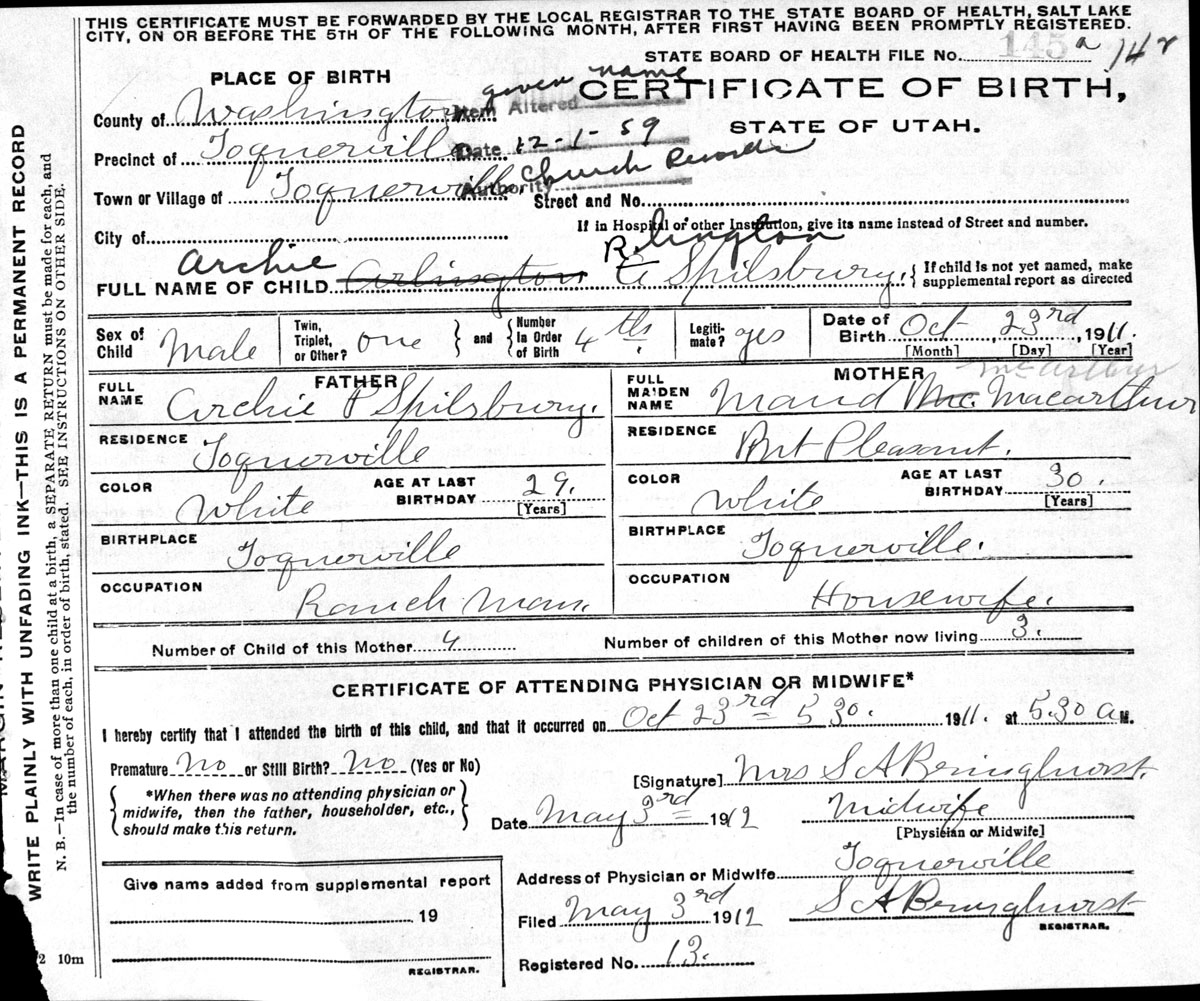 THIS CERTIFICATE MUST BE FORWARDED BY THE LOCAL REGISTRAR TO THE STATE BOARD OF HEALTH, SALT LAKE
CITY, ON OR BEFORE THE 5TH OF THE FOLLOWING MONTH, AFTER FIRST HAVING BEEN PROMPTLY REGISTERED.
STATE BOARD OF HEALTH FILE No. 145 a 142
PLACE OF BIRTH
given name
CERTIFICATE OF BIRTH,
County of Washington
Item Altered
STATE OF UTAH.
Precinct of Toquerville
Date 12-1-59
Town or Village of Toquerville
Authority Church Records
Street and No.
If in Hospital or other Institution, give its name instead of Street and number.
City of
Archie Relington
FULL NAME OF CHILD Arlington A Spilsbury. { If child is not yet named, make
supplemental report as directed
Sex of Child Male
Twin, Triplet, or Other? one
and
Number in Order of Birth 4th
Legitimate? yes
Date of Birth Oct, 23rd, 1911.
[Month] [Day] [Year]
FATHER
FULL NAME Archie P Spilsbury.
MOTHER McArthur
FULL MAIDEN NAME Maud Mc. Macarthur
RESIDENCE Toquerville
RESIDENCE Pnt Pleasant.
COLOR White
AGE AT LAST BIRTHDAY 29.
[Years]
COLOR White
AGE AT LAST BIRTHDAY 30.
[Years]
BIRTHPLACE Toquerville
BIRTHPLACE Toquerville.
OCCUPATION Ranch Man.
OCCUPATION Housewife.
Number of Child of this Mother 4
Number of children of this Mother now living 3.
CERTIFICATE OF ATTENDING PHYSICIAN OR MIDWIFE*
I hereby certify that I attended the birth of this child, and that it occurred on Oct 23rd 5 30. 1911. at 5.30 A M.
Premature No or Still Birth? No (Yes or No)
[Signature] Mrs S A Beringhurst.
*When there was no attending physician or
midwife, then the father, householder, etc.,
should make this return.
Date May 3rd 1912
Midwife
[Physician or Midwife]
Give name added from supplemental report
19
REGISTRAR.
Address of Physician or Midwife Toquerville
Filed May 3rd 1912 S A Beringhurst
REGISTRAR.
Registered No. 13.
2 10m
WRITE PLAINLY WITH UNFADING INK—THIS IS A PERMANENT RECORD
N. B.—In case of more than one child at a birth, a SEPARATE RETURN must be made for each, and
the number of each, in order of birth, stated. SEE INSTRUCTIONS ON OTHER SIDE.